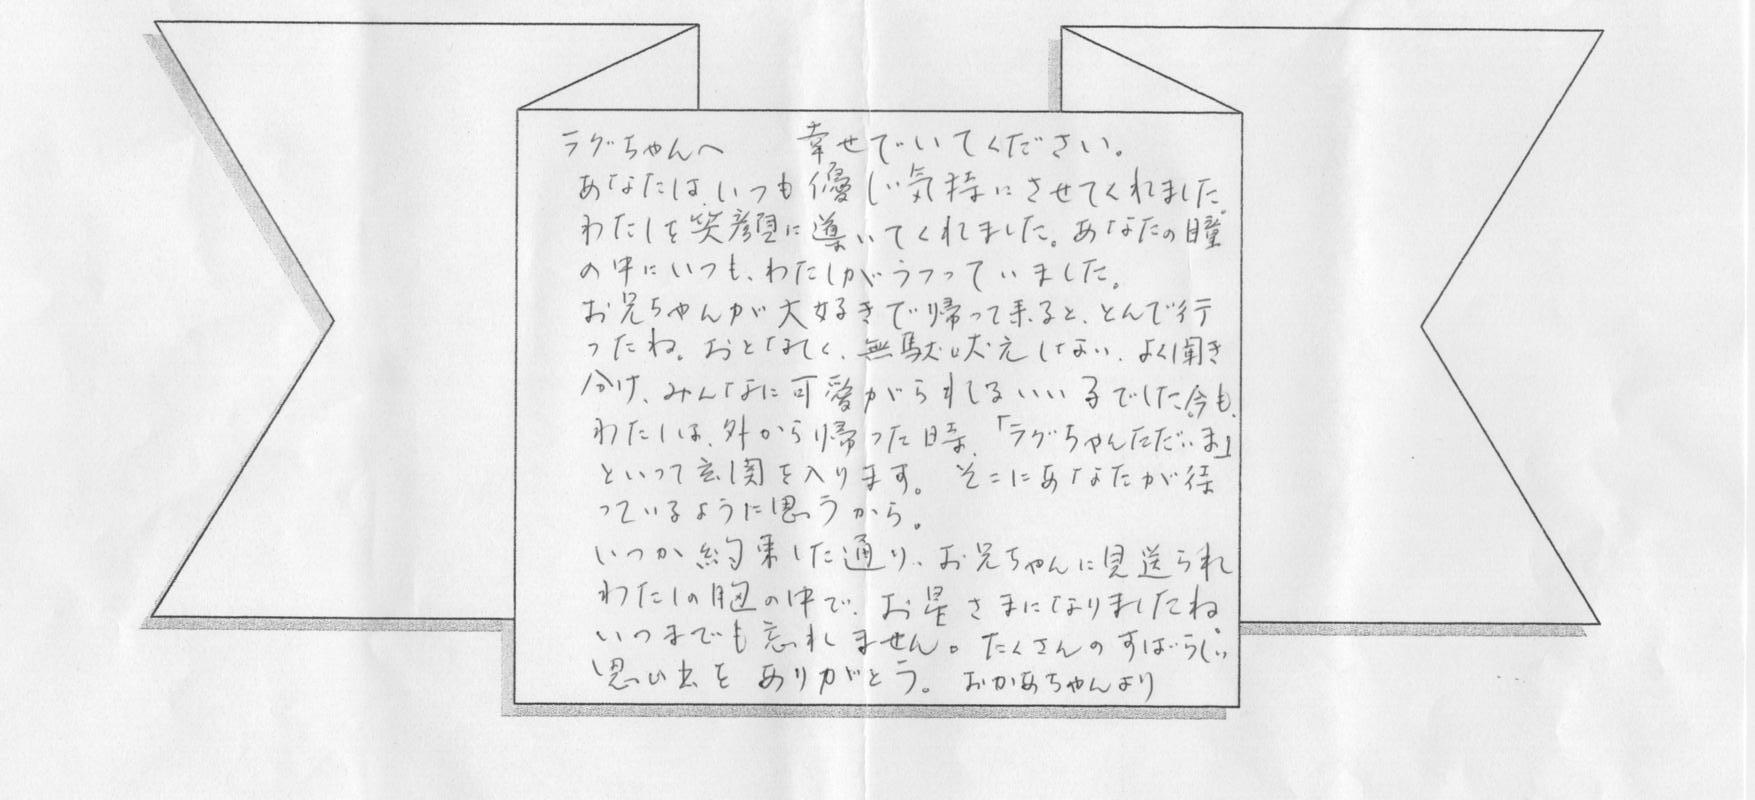 ラグちゃんへ　幸せでいてください。
あなたは、いつも優しい気持にさせてくれました。
わたしを笑顔に導いてくれました。あなたの瞳
の中にいつも、わたしがうつっていました。
お兄ちゃんが大好きで帰って来ると、とんで行
ったね。おとなしく、無駄吠えしない、よく聞き
分け、みんなに可愛がられるいい子でした。今も、
わたしは、外から帰った時、「ラグちゃんただいま」
といって玄関を入ります。そこにあなたが待
っているように思うから。
いつか約束した通り、お兄ちゃんに見送られ
わたしの胸の中で、お星さまになりましたね
いつまでも忘れません。たくさんのすばらしい
思い出をありがとう。おかあちゃんより